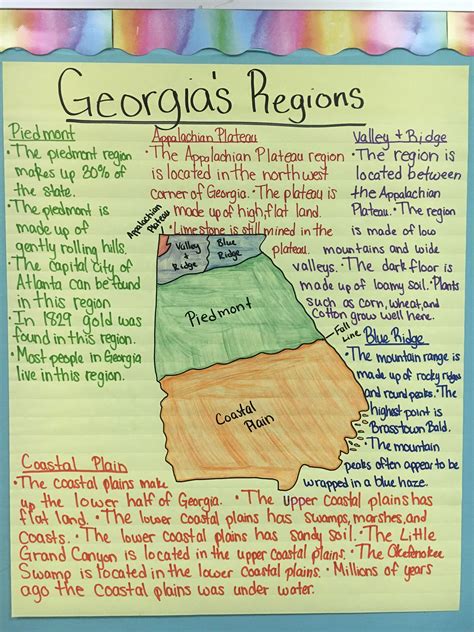 Georgia's Regions
Piedmont
• The piedmont region
makes up 30% of
the state.
• The piedmont is
made up of
gently rolling hills.
• The capital city of
Atlanta can be found
in this region
• In 1829 gold was
found in this region.
• Most people in Georgia
live in this region.
Appalachian Plateau
• The Appalachian Plateau region
is located in the northwest
corner of Georgia. • The plateau is
made up of high, flat land.
• Limestone is still mined in the
plateau.
Valley & Ridge
• The region is
located between
the Appalachian
Plateau. • The region
is made of low
mountains and wide
valleys. • The dark floor is
made up of loamy soil. • Plants
such as corn, wheat, and
cotton grow well here.
Appalachian
Plateau
Valley
&
Ridge
Blue
Ridge
Piedmont
Fall
Line
Coastal
Plain
Blue Ridge
• The mountain range is
made up of rocky ridges
and round peaks. • The
highest point is
Brasstown Bald.
• The mountain
peaks often appear to be
wrapped in a blue haze.
Coastal Plain
• The coastal plains make
up the lower half of Georgia. • The upper coastal plains has
flat land. • The lower coastal plains has swamps, marshes, and
coasts. • The lower coastal plains has sandy soil. • The Little
Grand Canyon is located in the upper coastal plains. • The Okefenokee
Swamp is located in the lower coastal plains. • Millions of years
ago the Coastal plains was under water.